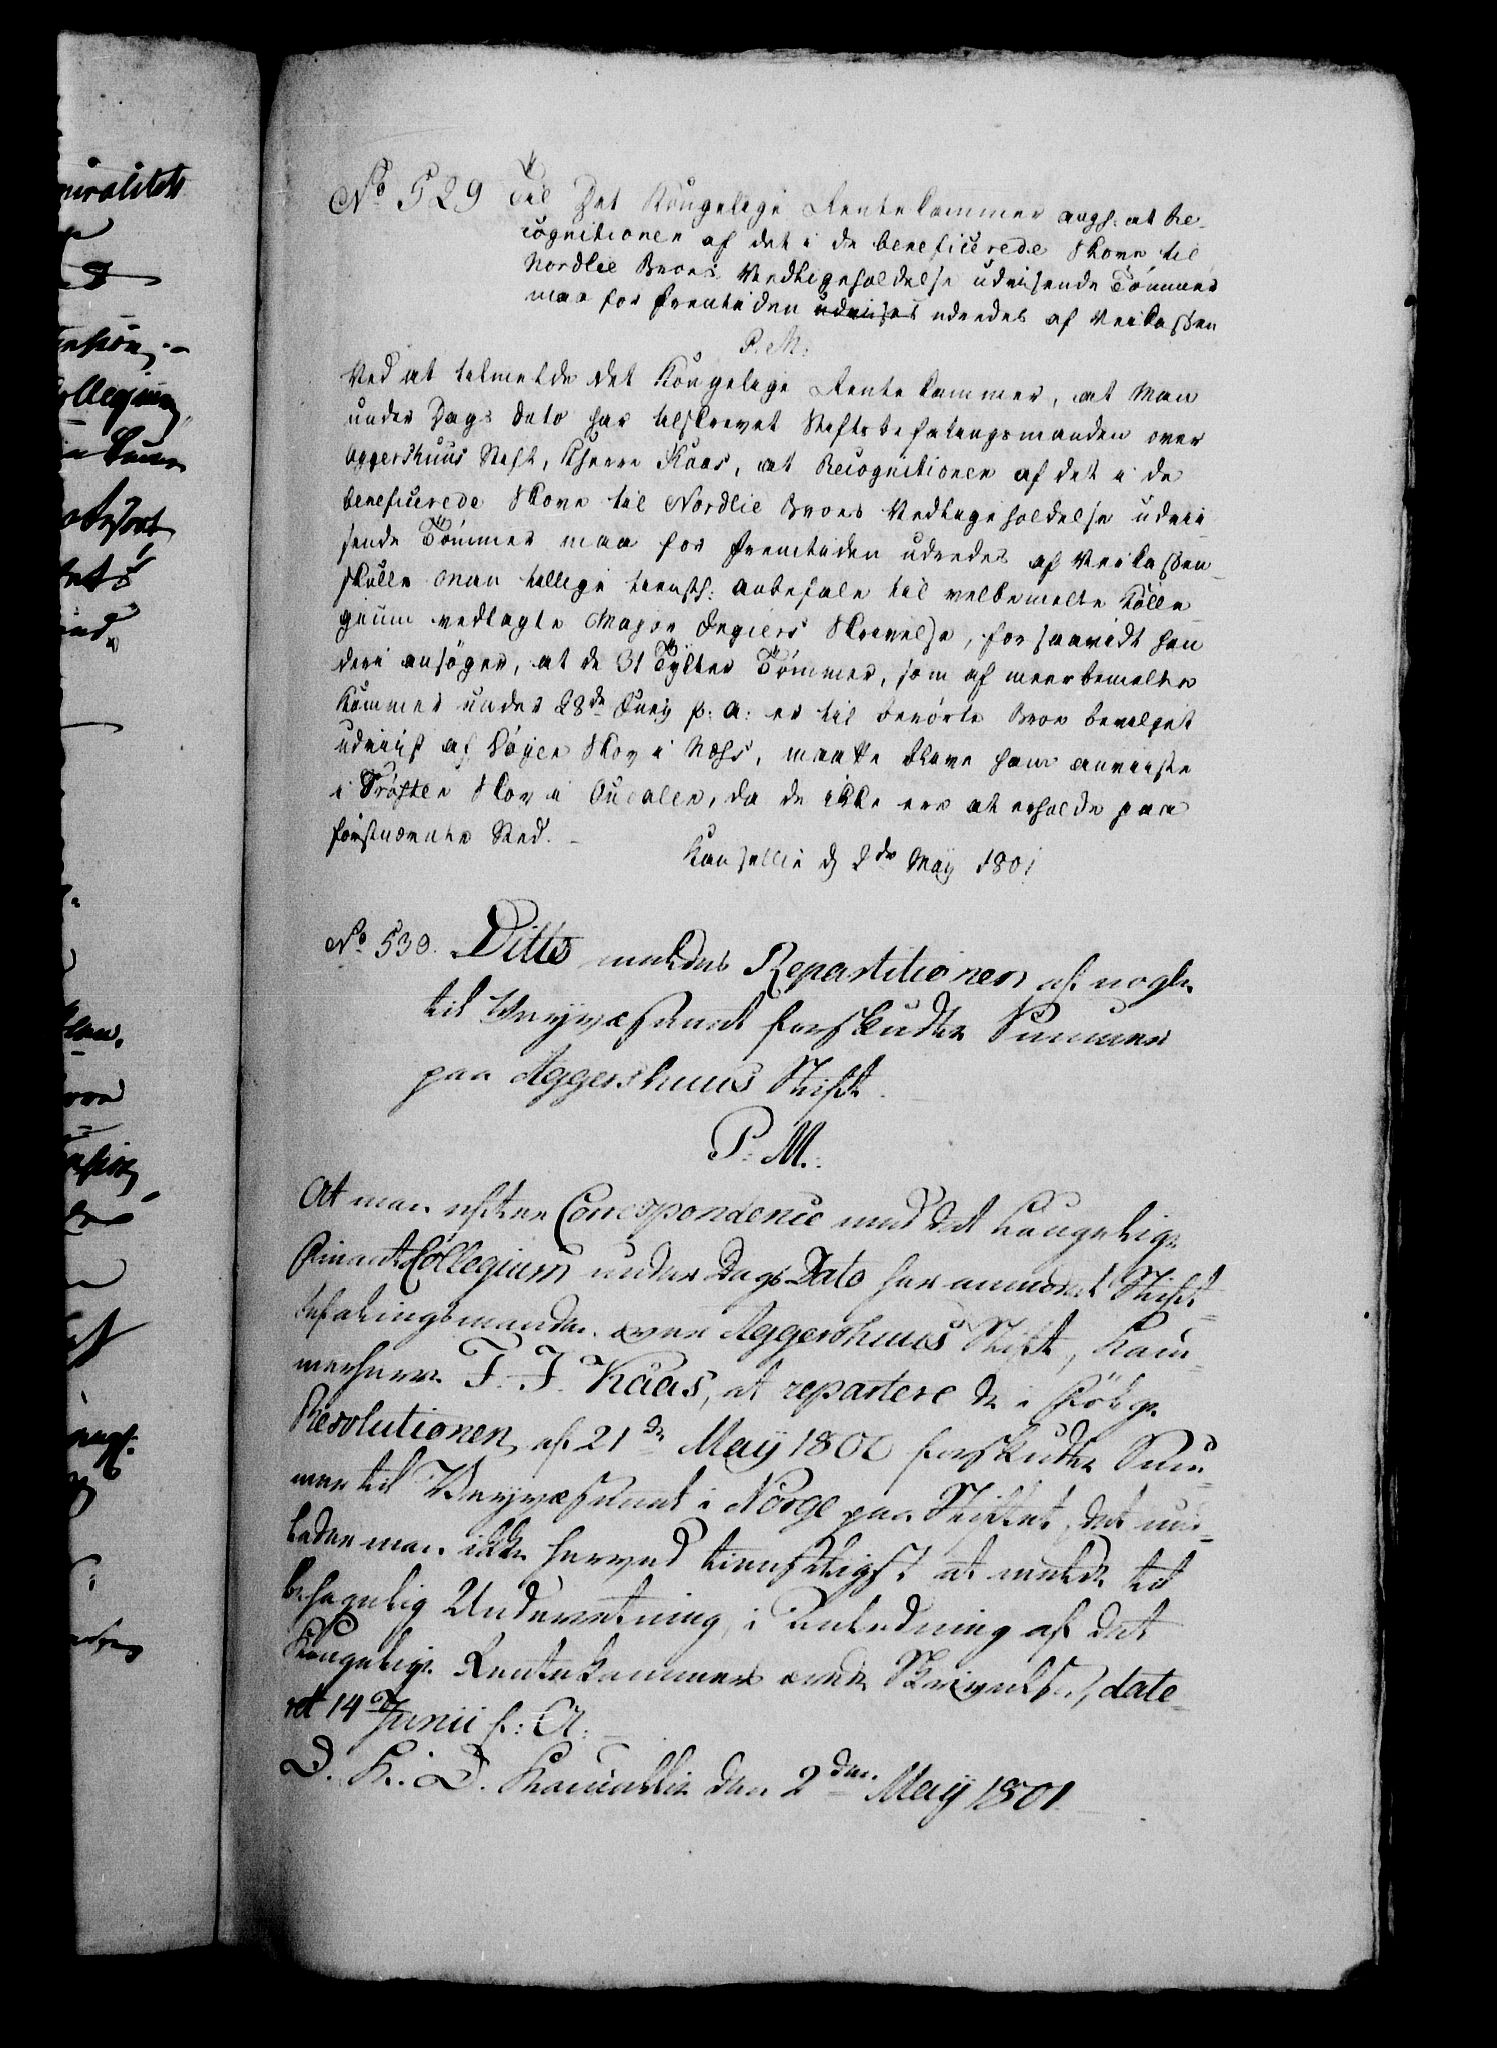 No 529 Til Det Kongelige Rentekammer angh: at Re-
cognitionen af det i de beneficerede Skove til
Nordlie Broes Vedligeholdelse udvisende Tömmer
maa for Fremtiden udvises udredes af Veikassen
P. M.
Ved at tilmelde det Kongelige Rentekammer, at Man
under Dags Dato har tilskrevet Stiftsbefalingsmanden over
Aggershuus Stift, Kherre Kaas, at Recognitionen af det i de
beneficerede Skove til Nordlie Broes Vedligeholdelse udvii-
sende Tömmer maa for Fremtiden udredes af Veikassen
skulle Man tillige tienstl: anbefale til velbemelte Colle-
gium vedlagte Major Skrivelse, forsaavidt han
deri ansöger, at de 31 Tylter Tömmer, som af meerbemelte
Kammer under 28de Junij p: A: er til berörte Broe bevilget
udviist af Skov i Næss, maatte blive ham anviiste
i Skov i Oudalen, da de ikke ere at erholde paa
förstnævnte Sted.
Kancellie d 2de Maij 1801
No 530. Ditto meldes Repartitionen af nogle
til Veiyvæsenet forskudte Summer
paa Aggershuus Stift.
P. M.
At man efter Correspondence med det kongelige
Finants Collegium under Dags Dato har anmodet Stift-
befalingsmanden over Aggershuus Stift, Kam-
merherre F. J. Kaas, at repartere de i Fölge
Resolutionen af 21de Maij 1800 forskudte Sum-
mer til Veiyvæsenet i Norge paa Stiftet, det und-
lader man ikke herved tienstligst at melde til
behagelig Underretning, i Anledning af det
Kongelige Rentekammers Skrivelse, date-
ret 14 Junii f: A:
D. K. D. Kancellie den 2den Maij 1801.